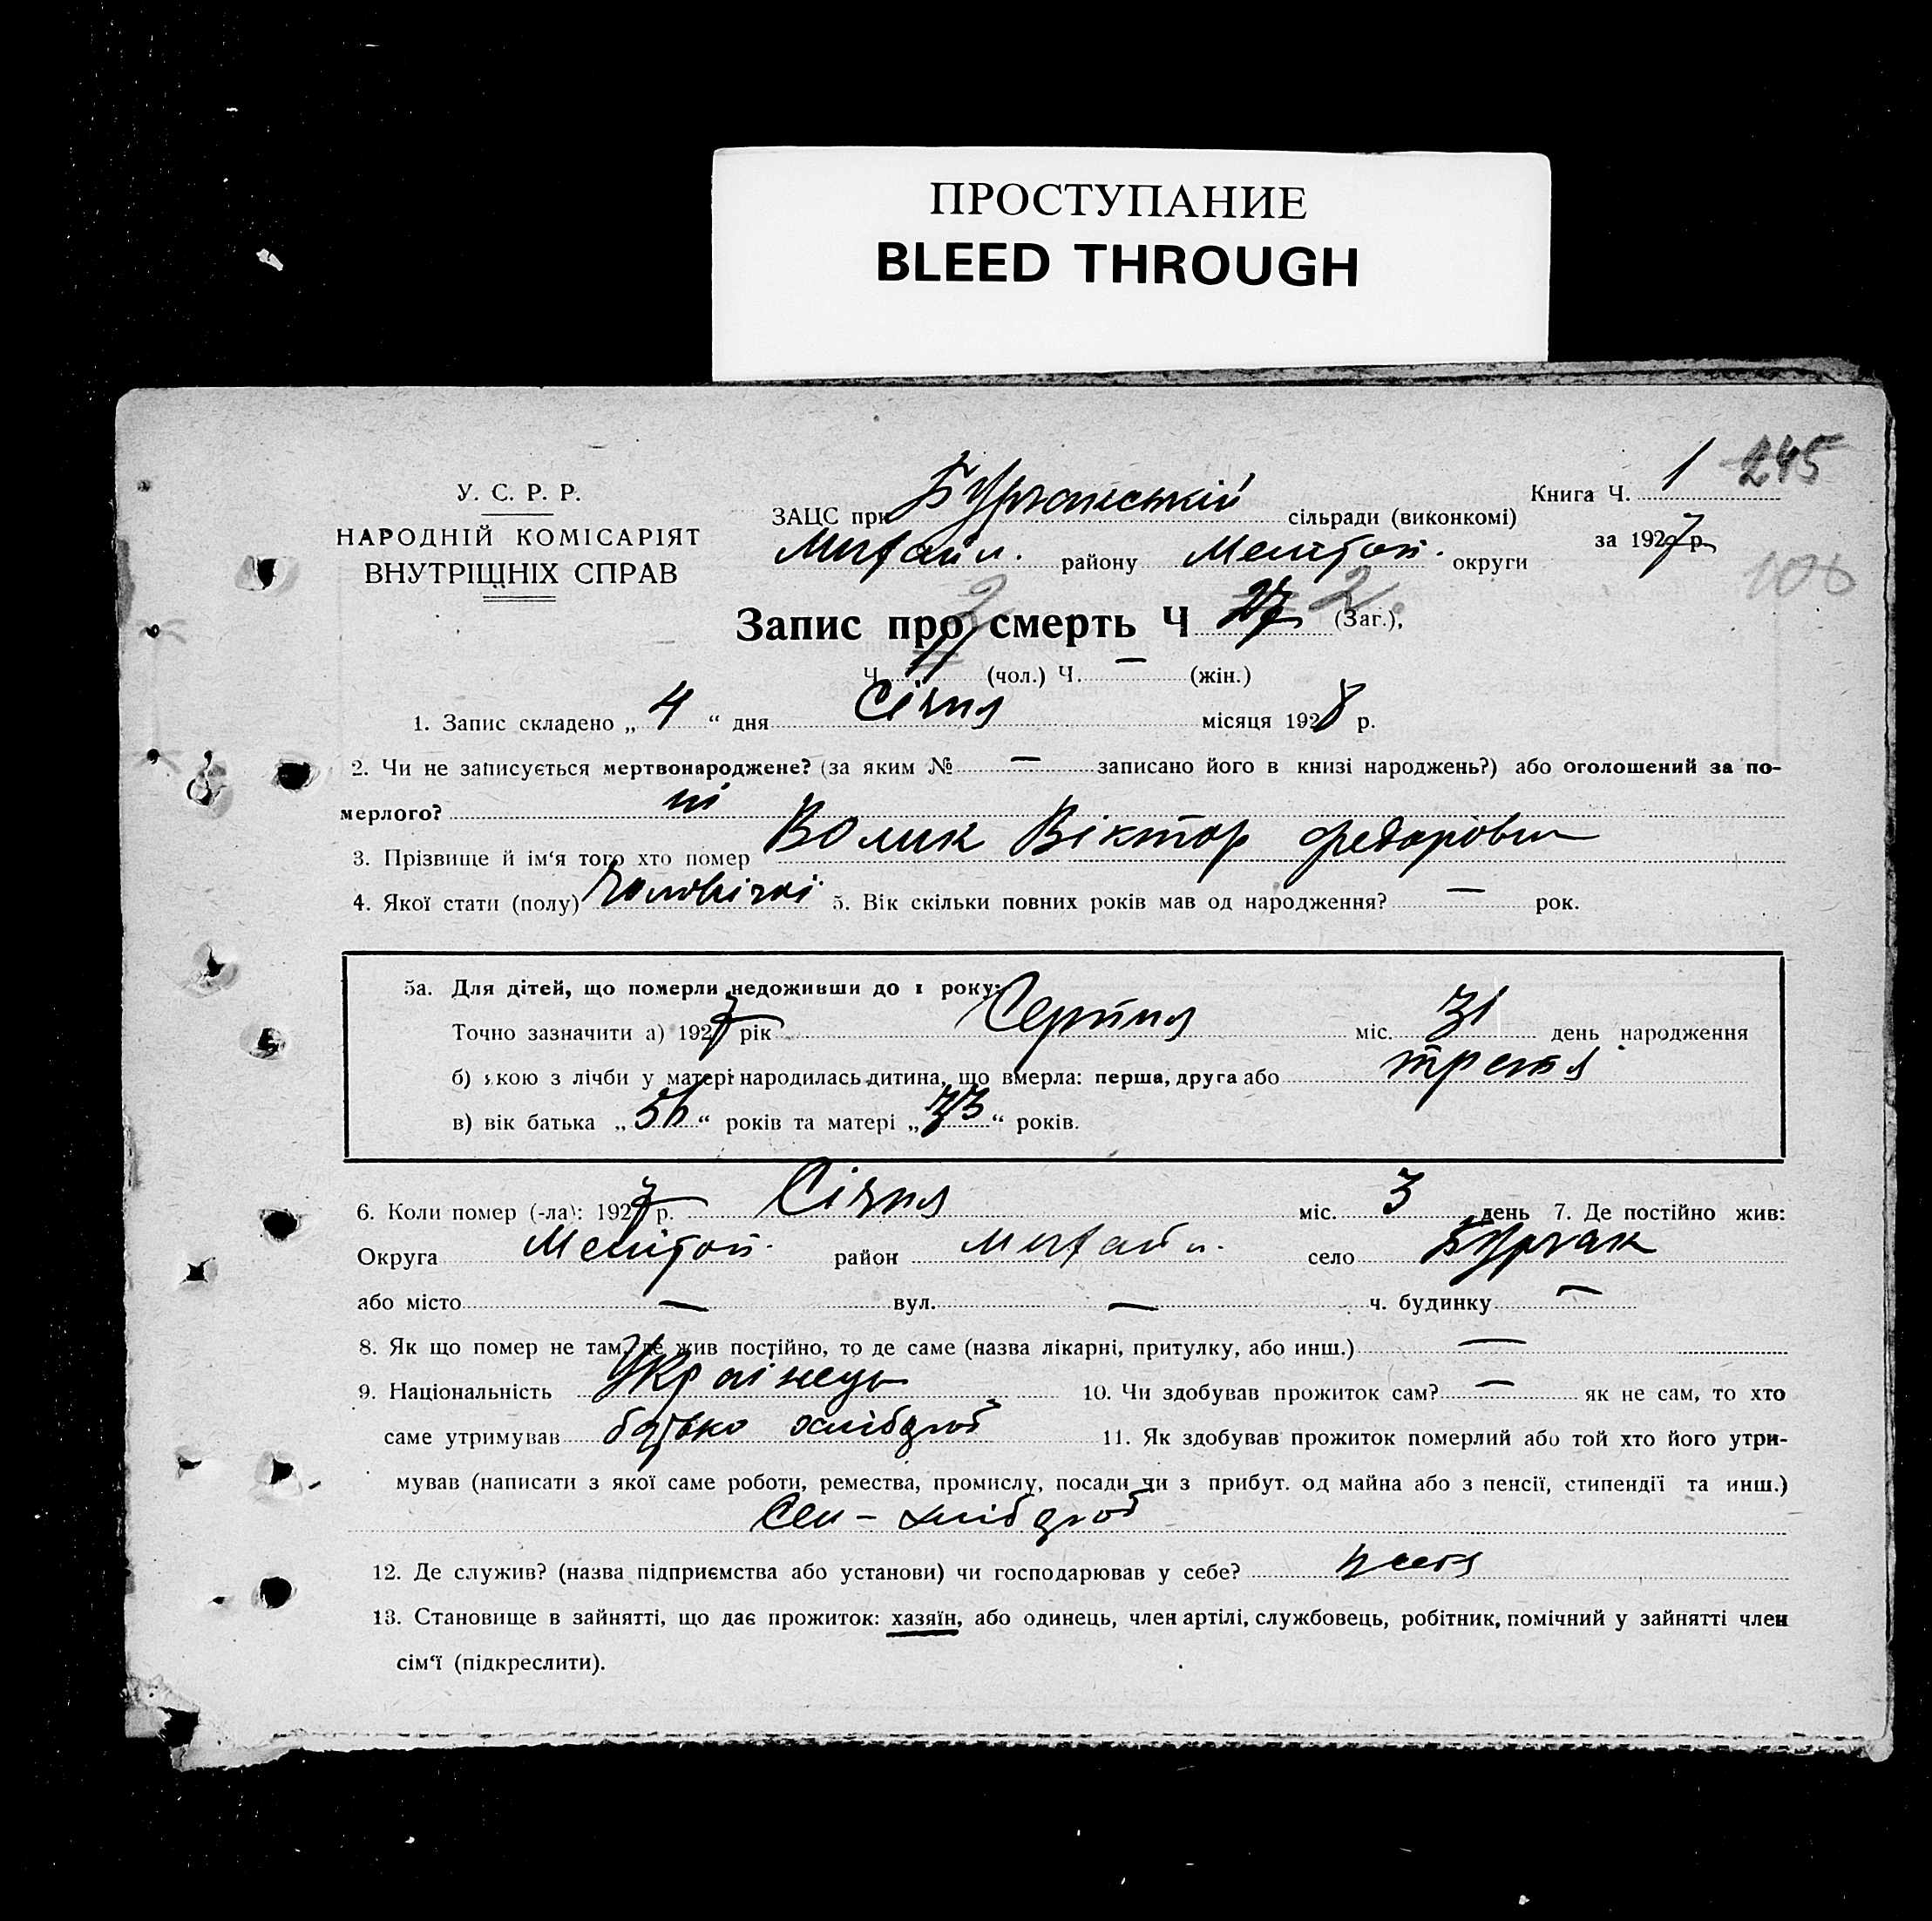 ПРОСТУПАНИЕ
BLEED THROUGH
У. С. Р. Р.
НАРОДНІЙ КОМІСАРІЯТ
ВНУТРІШНІХ СПРАВ
Книга Ч. 1 245
ЗАЦС при Бурчанській сільради (виконкомі)
за 1927 р.
Михайл. району Мелітоп. округи
106
Запис про смерть Ч 27 2 (Заг.),
2
Ч. 17 (чол.) Ч. — (жін.)
1. Запис складено „ 4 “ дня Січня місяця 1928 р.
2. Чи не записується мертвонароджене? (за яким № — записано його в книзі народжень?) або оголошений за по-
мерлого? ні
3. Прізвище й ім‘я того хто помер Волик Віктор Федорович
4. Якої стати (полу) Чоловічої 5. Вік скільки повних років мав од народження? — рок.
5а. Для дітей, що померли недоживши до 1 року:
Точно зазначити а) 1927 рік Серпня міс. 31 день народження
б) якою з лічби у матері народилась дитина, що вмерла: перша, друга або третя
в) вік батька „ “ років та матері „ 33 “ років.
6. Коли помер (-ла): 1927 р. Січня міс. 3 день 7. Де постійно жив:
Округа Мелітоп. район Михайл. село Бурчак
або місто — вул. — ч. будинку —
8. Як що помер не там, де жив постійно, то де саме (назва лікарні, притулку, або инш.) —
9. Національність Українець 10. Чи здобував прожиток сам? — як не сам, то хто
саме утримував батько хлібороб 11. Як здобував прожиток померлий або той хто його утри-
мував (написати з якої саме роботи, ремества, промислу, посади чи з прибут. од майна або з пенсії, стипендії та инш.)
Сел - хлібороб
12. Де служив? (назва підприємства або установи) чи господарював у себе?
13. Становище в зайнятті, що дає прожиток: хазяїн, або одинець, член артілі, службовець, робітник, помічний у зайнятті член
сім‘ї (підкреслити).